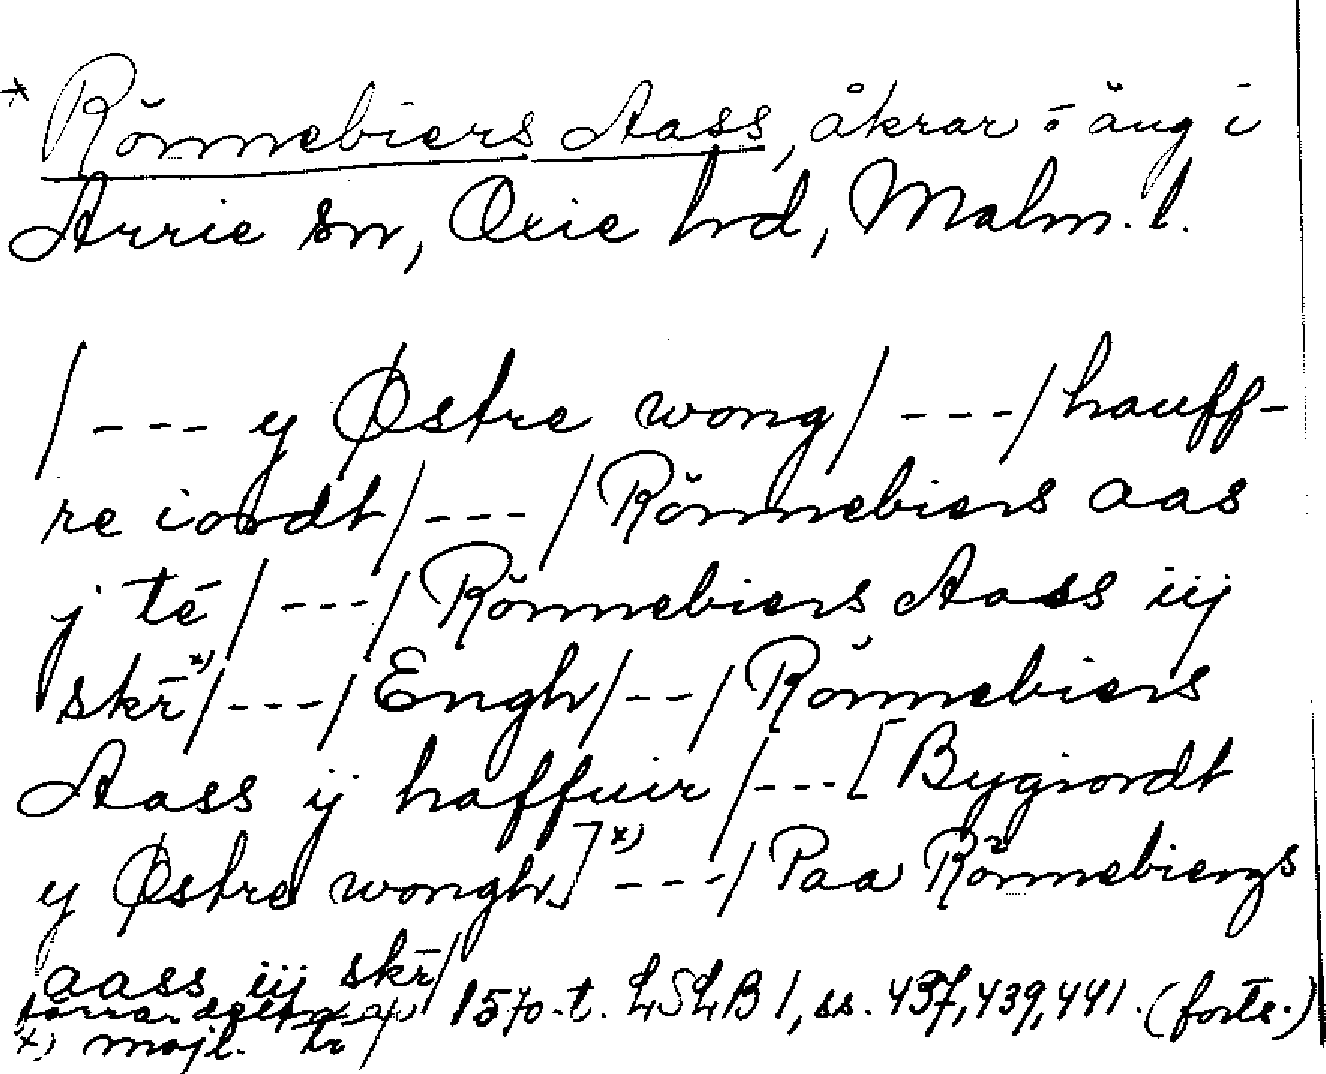 * Rönnebiers Aass, åkrar o äng i
Arrie sn, Oxie hd, Malm. l.
/--- y Østre wong/---/hauff-
re iordt/---/Rönnebiers aas
j té/---/Rönnebiers Aass iij
skr̄ x)/---/Engh/--/Rönnebiers
Aass ij haffuir/---[Bygiordt
y Østre wongh] x)---/Paa Rönnebiergs
aass iij skr̄/
1570-t. LSLB 1, ss. 437, 439, 441. (forts.)
x) möjl.